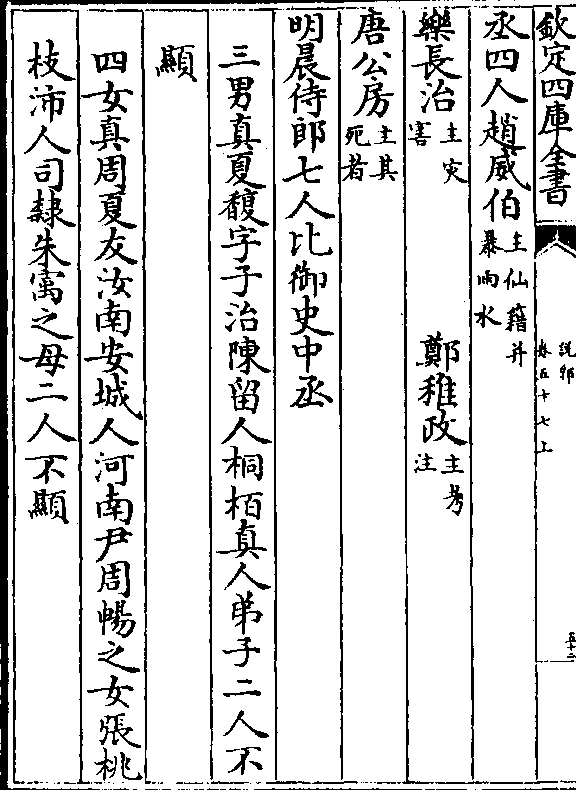 欽定四庫全書
說郛
卷五十七上
五十二
丞四人趙威伯主仙籍并暴雨水
樂長治主灾害 鄭稚政主考注
唐公房主其死者
明晨侍郎七人比御史中丞
三男真夏馥字子治陳留人桐栢真人弟子二人不
顯
四女真周夏友汝南安城人河南尹周暢之女張桃
枝沛人司隸朱㝢之母二人不顯